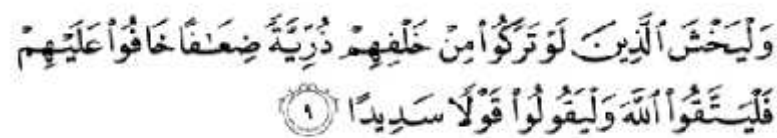 وَلْيَخْشَ ٱلَّذِينَ لَوْ تَرَكُوا۟ مِنْ خَلْفِهِمْ ذُرِّيَّةً ضِعَـٰفًا خَافُوا۟ عَلَيْهِمْ
فَلْيَتَّقُوا۟ ٱللَّهَ وَلْيَقُولُوا۟ قَوْلًا سَدِيدًا ۝٩